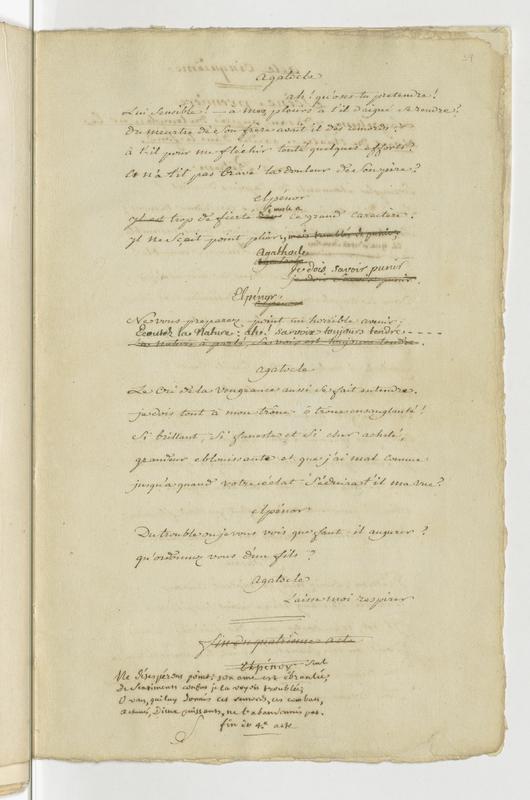 agatocle
ah! qu'oses-tu pretendre!
Lui sensible! a mes pleurs a t'il daigné se rendre?
du meurtre de son frere avait il des remords?
à t'il pour me fléchir tenté quelques efforts?
et n'a t'il pas bravé la douleur des son pere?
elpénor
il mela
yl est trop de fierté ce grand caractere.
yl ne scait point plier,
Agathocle
Je dois savoir punir
Elpénor
Ne vous preparez point un horrible avenir.
Ecoutez la Nature: ah! sa voix toujours tendre
La nature à parlé, sa voix est toujours tendre.
agatocle
Le cri de la vengeance aussi se fait entendre.
je dois tout à mon trône ô trône ensanglanté!
Si brillant, Si funeste et Si cher acheté,
grandeur eblouissante et que j'ai mal connue
jusqu'a quand votre éclat Séduira t'il ma vue?
elpénor
Du trouble ou je vous vois que faut-il augurer?
qu'ordonnez vous d'un fils?
agatocle
Laisse moi respirer
fin du quatrième acte
Elpénor seul
Ne désespérons point: son ame est ébranlée;
De sentiments confus je la voyois troublée;
O vous, qui luy donnés ces remords, ces combats,
achevés, Dieux puissants, ne l'abandonnés pas.
fin du 4e acte